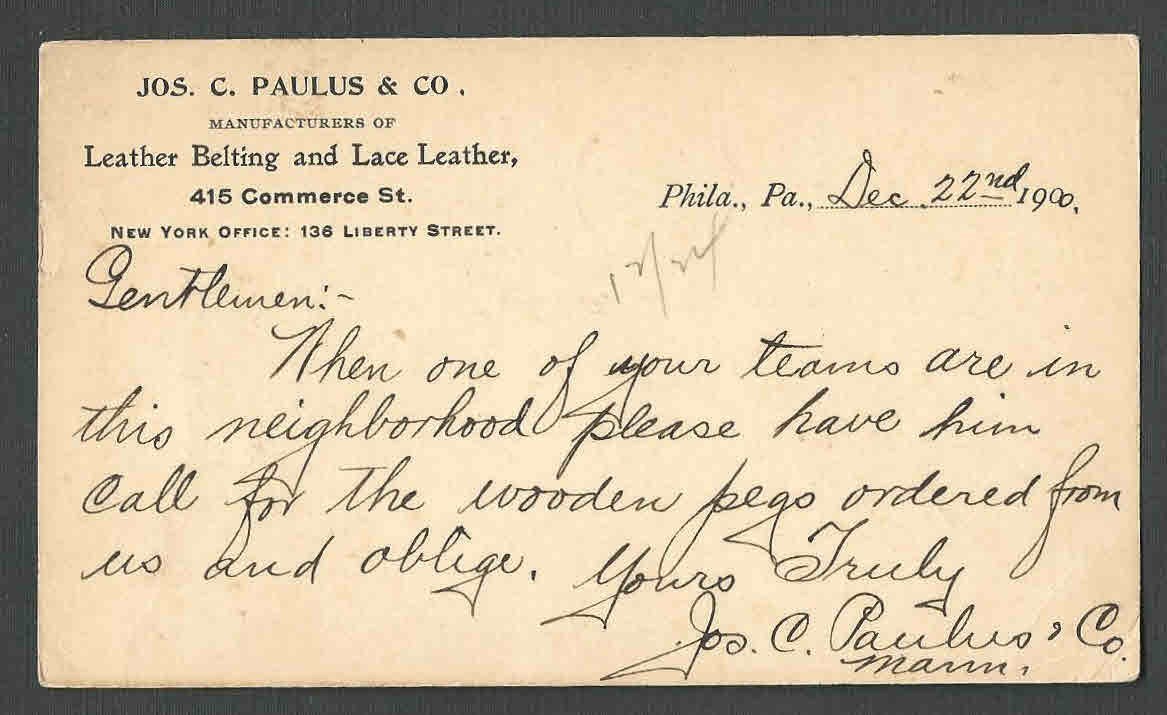 JOS. C. PAULUS & CO.
MANUFACTURERS OF
Leather Belting and Lace Leather,
415 Commerce St.
NEW YORK OFFICE: 136 LIBERTY STREET.
Phila., Pa., Dec. 22nd 1900.
12/24
Gentlemen:-
When one of your teams are in
this neighborhood please have him
call for the wooden pegs ordered from
us and oblige. Yours Truly
Jos. C. Paulus & Co.
Mann.